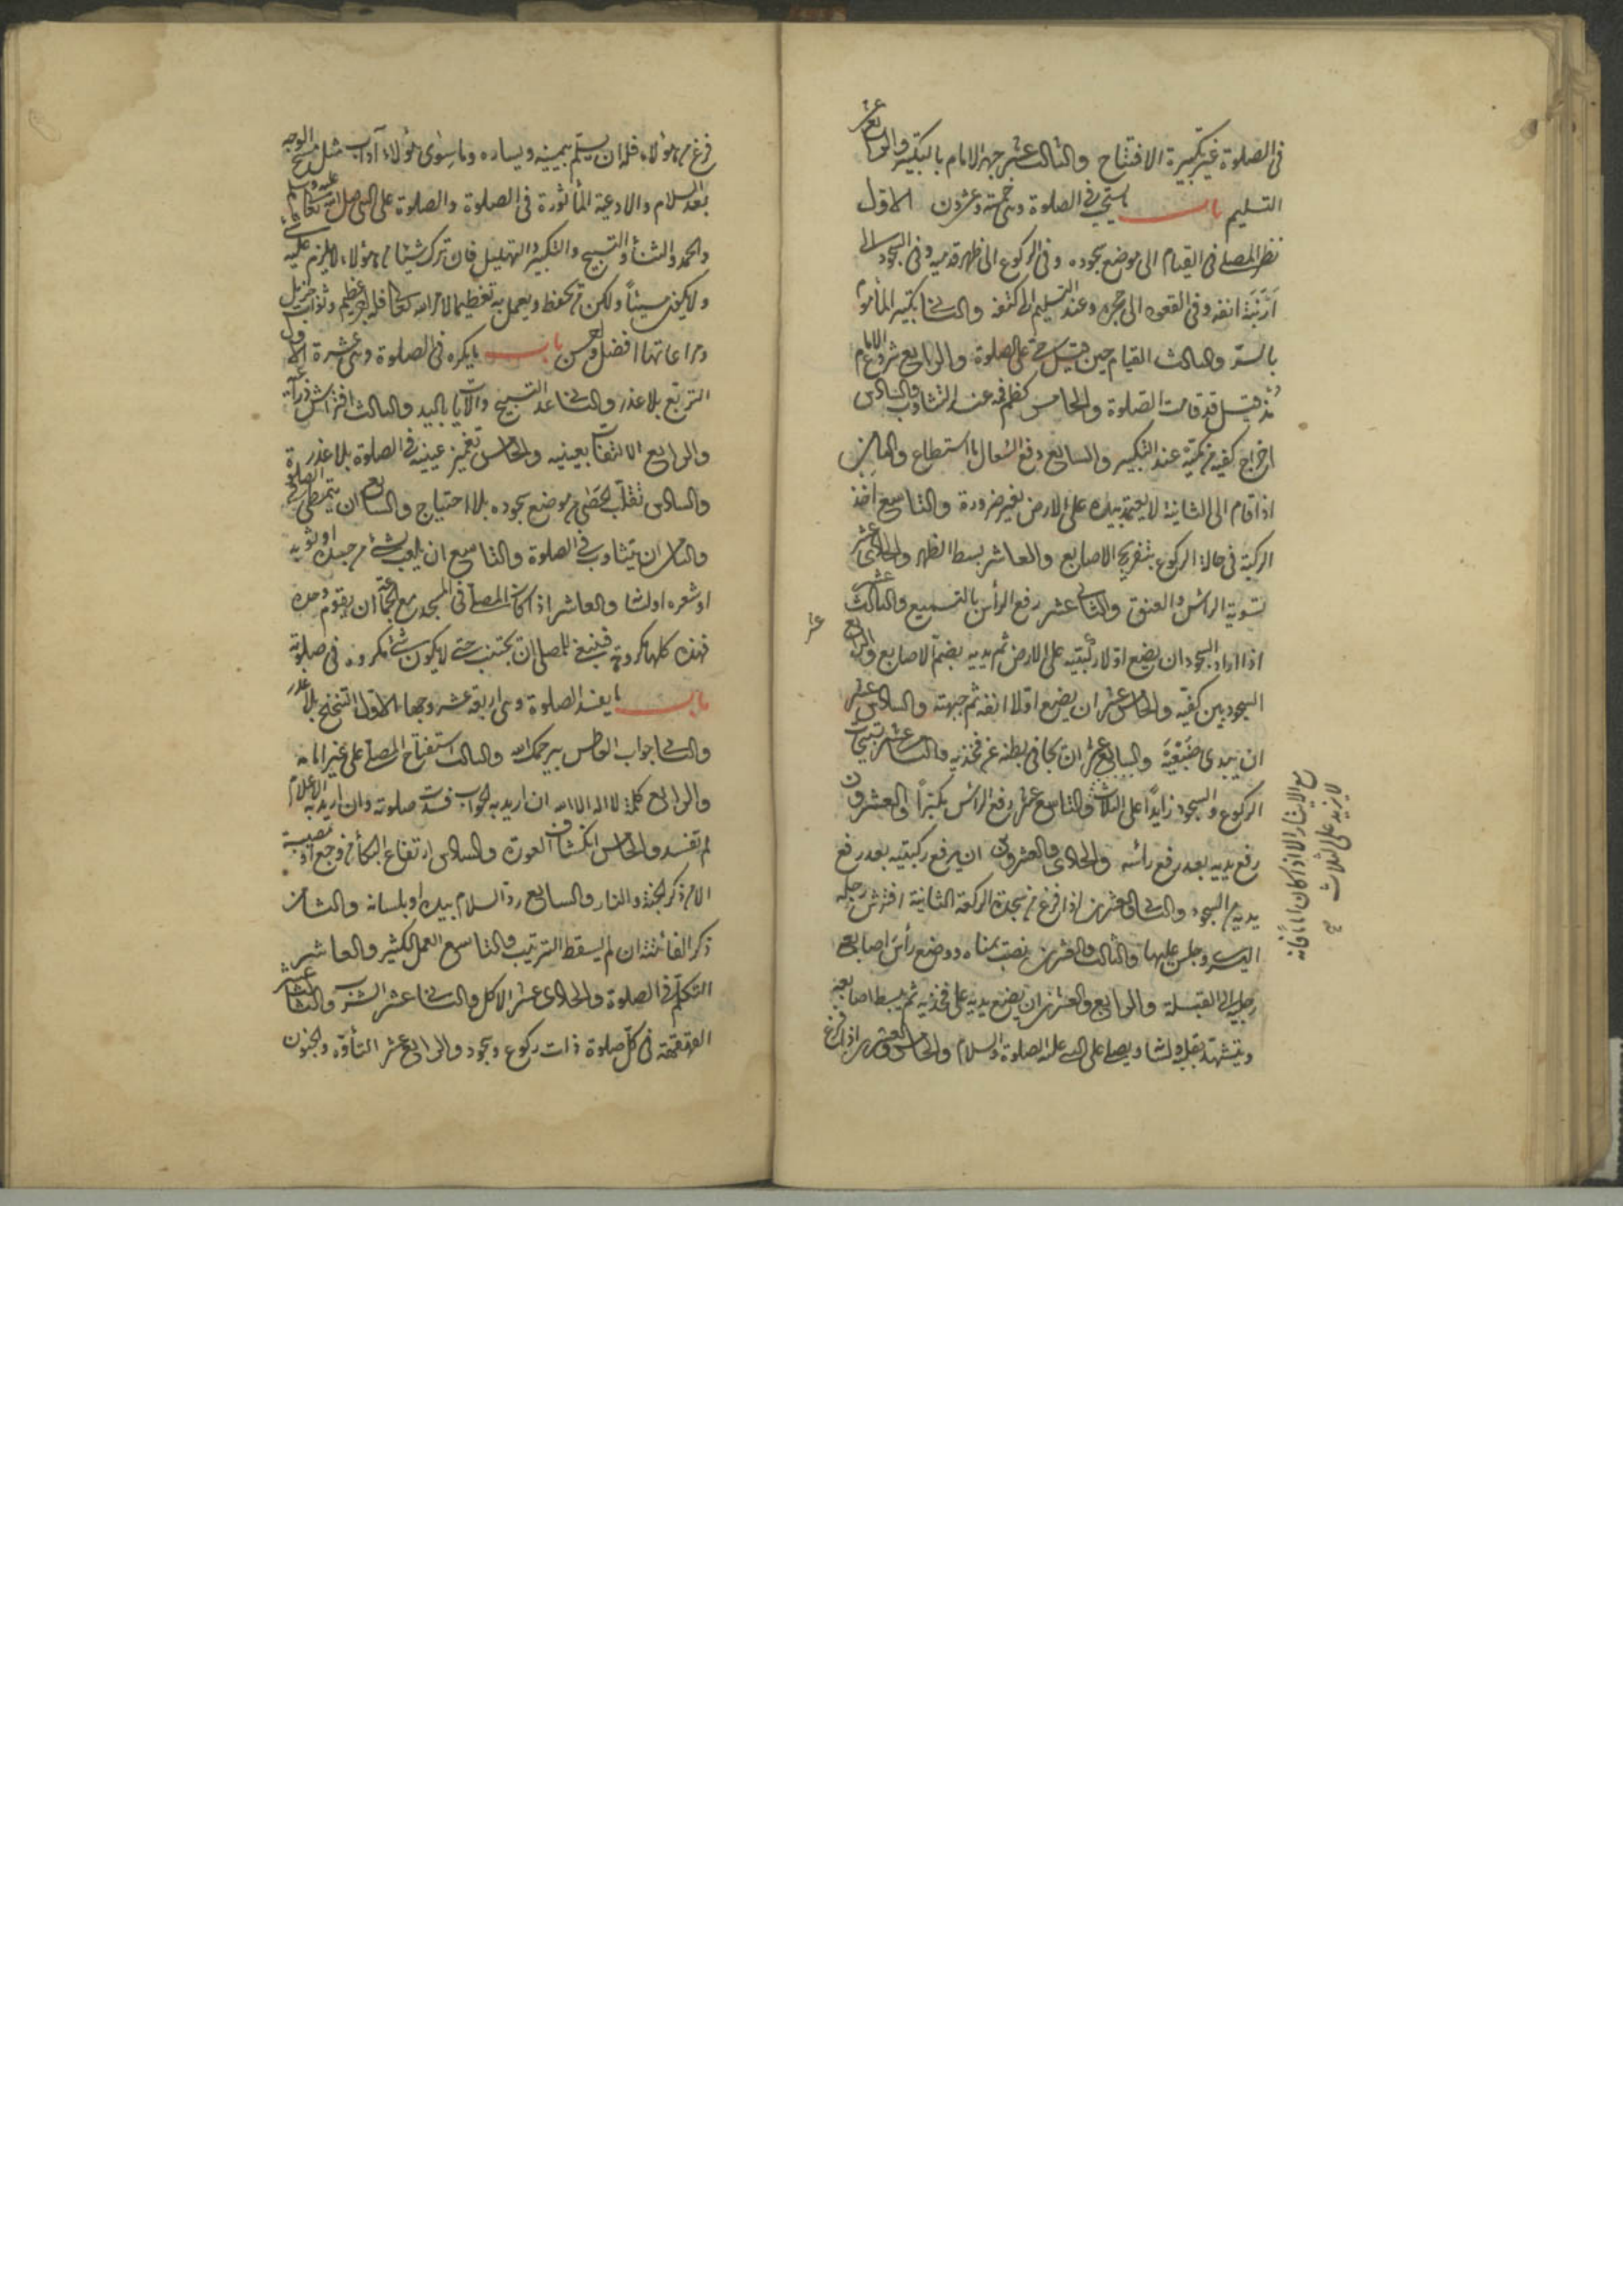 فى الصلوة غير تكبيرة الافتتاح والثالث عشر جهر الامام بالتكبير والرابع عشر
التسليم باب ما يستحب فى الصلوة وهى خمسة وعشرون الاول
نظر المصلى فى القيام الى موضع سجوده وفى الركوع الى ظهر قدميه وفى السجود الى
اَرْنَبَة انفه وفى القعود الى حجره وعند التسليم الى كتفه والثانى تكبير المأموم
بالسر والثالث القيام حين قيل حى على الصلوة والرابع شروع الامام
مذ قيل قد قامت الصلوة والخامس كظم فمه عند التثاوب والسادس
اخراج كفيه من كميه عند التكبير والسابع دفع السعال ما استطاع والثامن
اذا قام الى الثانية لا يعتمد بيده على الارض بغير ضرورة والتاسع اخذ
الركبة فى حالة الركوع بتفريج الاصابع والعاشر بسط الظهر والحادى عشر
تسوية الرأس والعنق والثانى عشر رفع الرأس بالتسميع والثالث عشر
اذا اراد السجود ان يضع اولا ركبتيه على الارض ثم يديه بضم الاصابع والرابع عشر
السجود بين كفيه والخامس عشر ان يضع اولا انفه ثم جبهته والسادس عشر
ان يبدى ضَبْعَيْهِ والسابع عشر ان يجافى بطنه عن فخذيه والثامن عشر تسبيحات
الركوع والسجود زايدًا على الثلاث والتاسع عشر رفع الرأس مكبرًا والعشرون
رفع يديه بعد رفع رأسه والحادى والعشرون ان يرفع ركبتيه بعد رفع
يديه من السجود والثانى والعشرين اذا فرغ من سجدة الركعة الثانية افترش رجله
اليسرى وجلس عليها والثالث والعشرين نصب يمناه ووضع رأس اصابع
رجليه الى القبلة والرابع والعشرين ان يضع يديه على فخذيه ثم يبسط اصابعه
ويتشهد بقلب ولسان ويصلى على النبى عليه الصلوة والسلام والخامس والعشرين اذا فرغ
مع الايتار الا اذا كان اماما فانه
لا يزيد على الثلاث صح
فرغ من هؤلاء فله ان يسلم بيمينه ويساره وما سوى هؤلاء آداب مثل مسح الوجه
بعد السلام والادعية المأثورة فى الصلوة والصلوة على النبى صلى الله تعالى عليه وسلم
والحمد والثنأ والتسبيح والتكبير والتهليل فان ترك شيئا من هؤلاء لا يلزم عليه شئ
ولا يكون مسيئًا ولكن من يحفظ ويعمل به تعظيما لامر الله تعالى فله اجر عظيم وثواب جزيل
ومراعاتها افضل واحسن باب ما يكره فى الصلوة وهى عشرة الاول
التربع بلا عذر والثانى عد التسبيح والآيات باليد والثالث افتراش ذراعيه
والرابع الالتفات بعينيه والخامس تغميز عينيه فى الصلوة بلا عذر
والسادس تقلّب الحَصَى من موضع سجوده بلا احتياج والسابع ان يتمطى فى الصلوة
والثامن ان يتثاوب فى الصلوة والتاسع ان يلعب بشئ من جسده او ثوبه
او شعره او لسانه والعاشر اذا كان المصلى فى المسجد مع الجماعة ان يقوم وحده
فهذه كلها مكروهة فينبغى للمصلى ان يجتنب حتى لا يكون شئ مكروه فى صلوته
باب ما يفسد الصلوة وهى اربعة عشر وجها الاول التنحنح بلا عذر
والثانى جواب العاطس بيرحمك الله والثالث استفتاح المصلى على غير امامه
والرابع كلمة لا اله الا الله ان اريد به الجواب فسدت صلوته وان اريد به الاعلام
لم تفسد والخامس انكشاف العورة والسادس ارتفاع البكأ من وجع او مصيبة
الا من ذكر الجنة والنار والسابع رد السلام بيده او بلسانه والثامن
ذكر الفائتة ان لم يسقط الترتيب والتاسع العمل الكثير والعاشر
التكلم فى الصلوة والحادى عشر الاكل والثانى عشر الشرب والثالث عشر
القهقهة فى كل صلوة ذات ركوع وسجود والرابع عشر التأوه والجنون